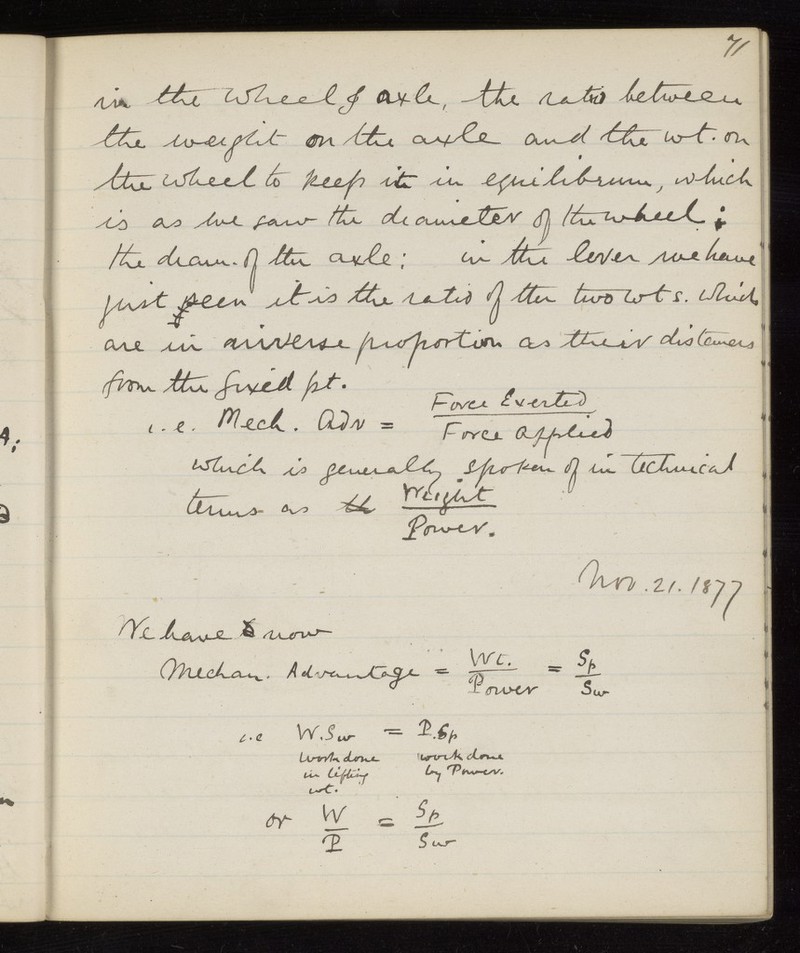 71
in the wheel & axle, the ratio between
the weight on the axle and the wt. on
the wheel to keep it in equilibrium, which
is as we saw the diameter of the wheel :
the diam. of the axle; in the lever we have
just seen it is the ratio of the two wts. which
are in inverse proportion as their distances
from the fixed pt.
i.e. Mech. Adv = Force Exerted
Force applied
which is generally spoken of in technical
terms as Weight
Power.
Nov. 21. 1877
We have now
Mechan. Advantage = Wt. = Sp
Power Sw
i.e W.Sw = P.Sp
work done work done
in lifting by Power.
wt.
or W = Sp
P Sw
A;